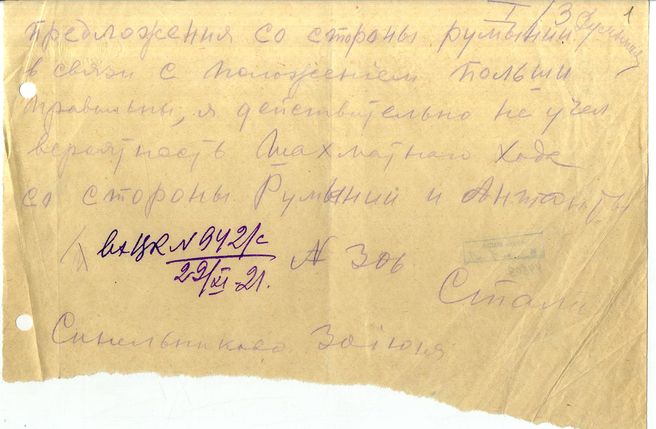 I/3 1
предложения со стороны румынии
в связи с положением Польши
правильны, я действительно не учел
вероятность шахматного хода
со стороны Румынии и Антанты
вх ЦК N 942/с
29/XI-21. N 306
Стали
Синельниково 30 июня